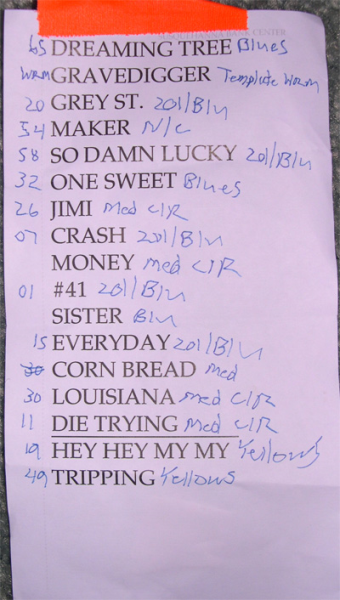 CENTER
65 DREAMING TREE Blues
WRM GRAVEDIGGER Template WORM
20 GREY ST. 201/Blu
54 MAKER N/C
58 SO DAMN LUCKY 201/Blu
32 ONE SWEET Blues
26 JIMI Med CLR
07 CRASH 201/Blu
MONEY Med CLR
01 #41 201/Blu
SISTER Blu
15 EVERYDAY 201/Blu
CORN BREAD Med
30 LOUISIANA Med CLR
11 DIE TRYING Med CLR
19 HEY HEY MY MY Yellows
49 TRIPPING Yellows